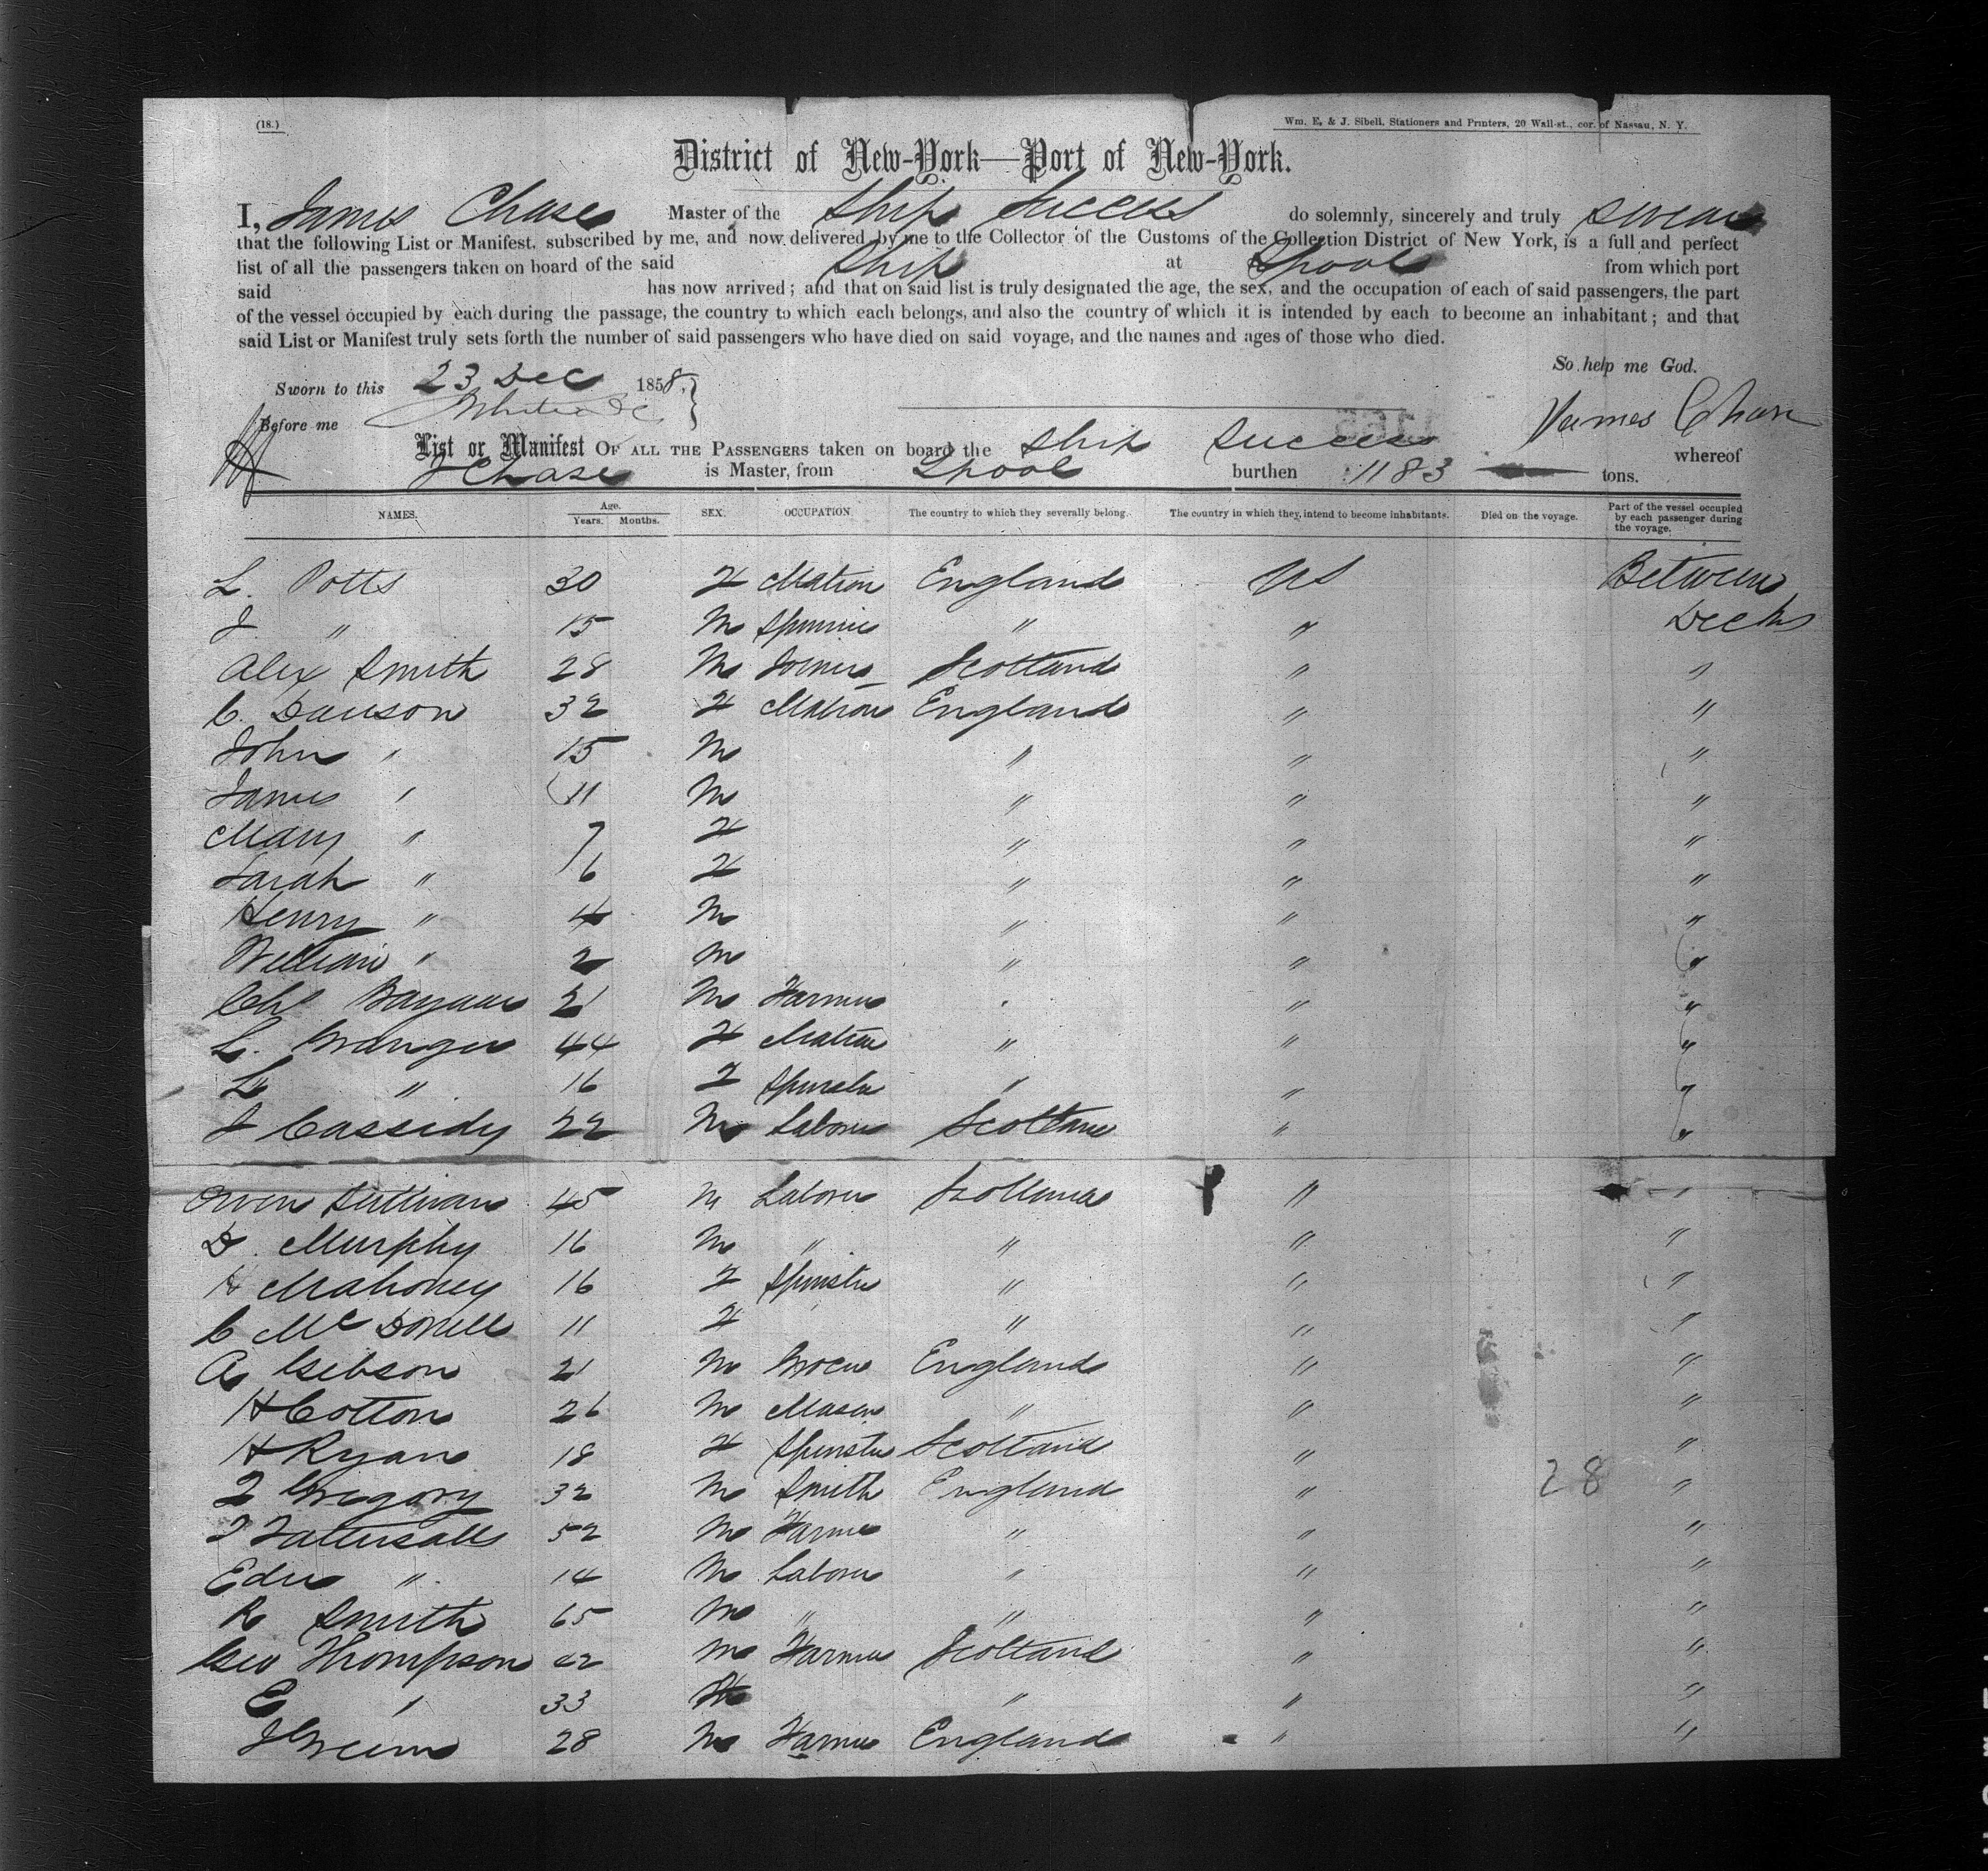 (18.)
Wm. E. & J. Sibell, Stationers and Printers, 20 Wall-st., cor. of Nassau, N. Y.
District of New-York—Port of New-York.
I, James Chase Master of the Ship Success do solemnly, sincerely and truly swear
that the following List or Manifest, subscribed by me, and now delivered by me to the Collector of the Customs of the Collection District of New York, is a full and perfect
list of all the passengers taken on board of the said Ship at Lpool from which port
said has now arrived; and that on said list is truly designated the age, the sex, and the occupation of each of said passengers, the part
of the vessel occupied by each during the passage, the country to which each belongs, and also the country of which it is intended by each to become an inhabitant; and that
said List or Manifest truly sets forth the number of said passengers who have died on said voyage, and the names and ages of those who died.
So help me God.
Sworn to this 23 Dec 1858.
Before me
James Chase
List or Manifest OF ALL THE PASSENGERS taken on board the Ship Success whereof
J Chase is Master, from Lpool burthen 1183 tons.
NAMES. Age. Years. Months. SEX. OCCUPATION. The country to which they severally belong. The country in which they intend to become inhabitants. Died on the voyage. Part of the vessel occupied by each passenger during the voyage.
L. Potts 30 F Matron England US Between
J " 15 M " " Decks
Alex Smith 28 M Joiner Scotland " "
C. Dawson 32 F Matron England " "
John " 15 M " " "
James " 11 M " " "
Mary " 7 F " " "
Sarah " 6 F " " "
Henry " 4 M " " "
William " 2 M " " "
Chs 21 M Farmer " " "
L. Granger 44 F Matron " " "
L " 16 F Spinster " " "
J Cassidy 22 M Laborer Scotland " "
Owen Sullivan 45 M Laborer Scotland " "
D. Murphy 16 M " " " "
H Mahoney 16 F Spinster " " "
C McDonell 11 F " " "
A Gibson 21 M Grocer England " "
H Cotton 26 M Mason " " "
H Ryan 18 F Spinster Scotland " "
Gregory 32 M Smith England " 28 "
T Tattersall 52 M Farmer " " "
Edw " 14 M Laborer " " "
R Smith 65 M " " " "
Geo Thompson 42 M Farmer Scotland " "
E " 33 " " "
J Green 28 M Farmer England " "